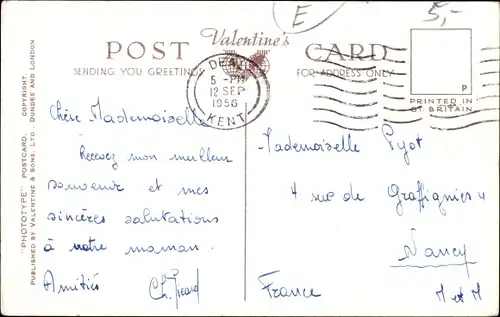 E
5,-
POST
Valentine's
CARD
SENDING YOU GREETINGS
FOR ADDRESS ONLY
DEAL
5 - PM
12 SEP
1956
KENT
P
PRINTED IN
GT. BRITAIN
"PHOTOTYPE" POSTCARD. COPYRIGHT.
PUBLISHED BY VALENTINE & SONS, LTD., DUNDEE AND LONDON
Chère Mademoiselle
Recevez mon meilleur
souvenir et mes
sincères salutations
à votre maman.
Amitiés Ch. Picard
Mademoiselle Pyot
4 rue de Graffignies
Nancy
M et M
France